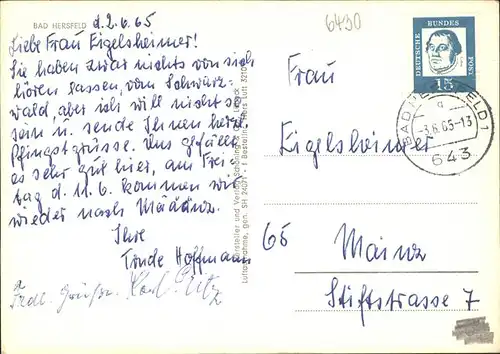 BAD HERSFELD d. 2.6.65
6430
Liebe Frau Eigelsheimer!
Sie haben zwar nichts von sich
hören lassen, vom Schwarz-
wald, aber ich will nicht so
sein u. sende Ihnen herzl.
Pfingstgrüsse. Uns gefällt
es sehr gut hier, am Frei-
tag d. 11.6. kommen wir
wieder nach Mainz.
Ihre
Trude Hoffmann
Frdl. Grüße Karl
Hersteller und Verlag Schöning
Luftaufnahme, gen.
DEUTSCHE BUNDES POST
15
BAD HERSFELD 1
a
-3.6.65-13
643
Frau
Eigelsheimer
65 Mainz
Stiftstrasse 7